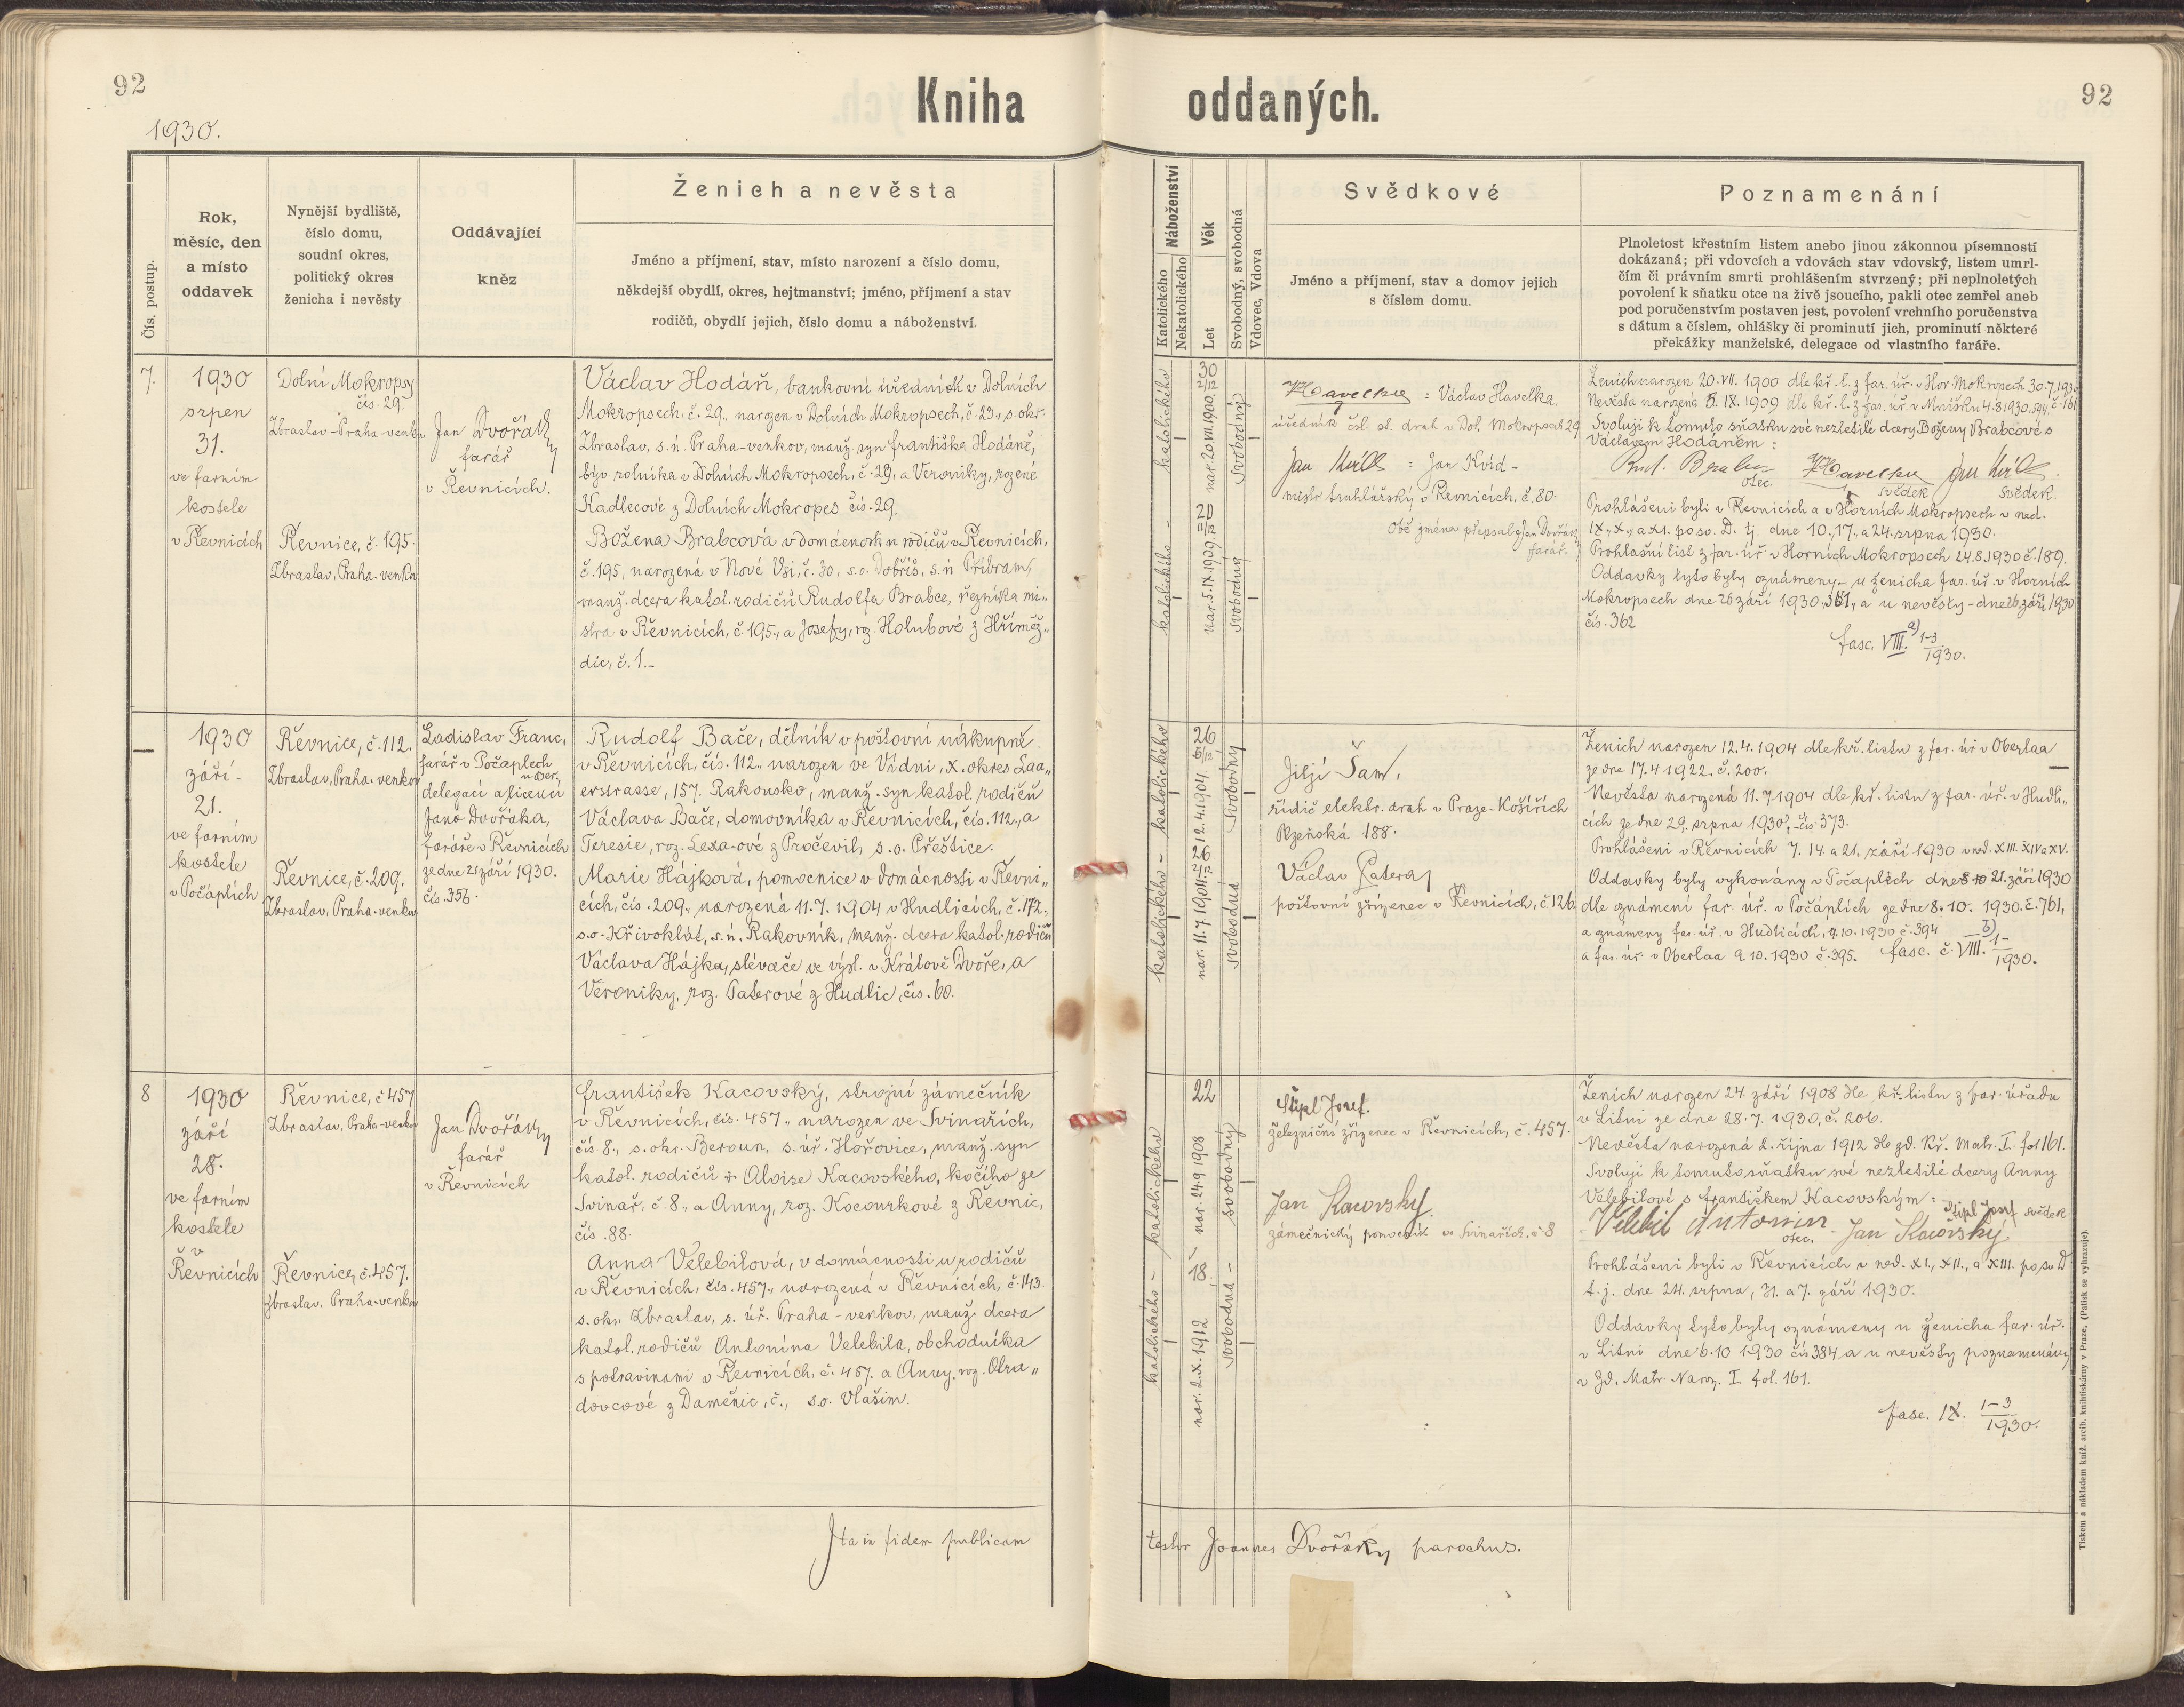 92
Kniha oddaných.
92
1930.
Čís. postup.
Rok,
měsíc, den
a místo
oddavek
Nynější bydliště,
číslo domu,
soudní okres,
politický okres
ženicha i nevěsty
Oddávající
kněz
Ženich a nevěsta
Jméno a příjmení, stav, místo narození a číslo domu,
někdejší obydlí, okres, hejtmanství; jméno, příjmení a stav
rodičů, obydlí jejich, číslo domu a náboženství.
Náboženství
Katolického
Nekatolického
Věk
Let
Svobodný, svobodná
Vdovec, Vdova
Svědkové
Jméno a příjmení, stav a domov jejich
s číslem domu.
Poznamenání
Plnoletost křestním listem anebo jinou zákonnou písemností
dokázaná; při vdovcích a vdovách stav vdovský, listem umrl-
čím či právním smrti prohlášením stvrzený; při neplnoletých
povolení k sňatku otce na živě jsoucího, pakli otec zemřel aneb
pod poručenstvím postaven jest, povolení vrchního poručenstva
s dátum a číslem, ohlášky či prominutí jich, prominutí některé
překážky manželské, delegace od vlastního faráře.
7.
1930
srpen
31.
ve farním
kostele
v Řevnicích
Dolní Mokropsy
čís. 29.
Zbraslav-Praha-venkov
Řevnice, č. 195.
Zbraslav, Praha-venkov
Jan Dvořák
farář
v Řevnicích.
Václav Hodáň, bankovní úředník v Dolních
Mokropsech, č. 29., narozen v Dolních Mokropsech, č. 23., s. okr.
Zbraslav, s. ú. Praha-venkov, manž. syn Františka Hodáně,
býv. rolníka v Dolních Mokropsech, č. 29, a Veroniky, rozené
Kadlecové z Dolních Mokropes čís. 29.
Božena Brabcová v domácnosti u rodičů v Řevnicích,
č. 195, narozená v Nové Vsi, č. 30, s.o. Dobříš, s. ú Příbram,
manž. dcera katol. rodičů Rudolfa Brabce, řezníka mi„
stra v Řevnicích, č. 195., a Josefy, roz. Holubové z Hříměž„
dic, č. 1.-
katolického - katolického
30 2/12
nar. 20. VII. 1900,
20 11/12
nar. 5. IX. 1909.
svobodný
svobodný
VHavelka = Václav Havelka,
úředník čsl. st. drah v Dol. Mokropsech 29
Jan Kvíd = Jan Kvíd -
mistr truhlářský v Řevnicích, č. 80.
Obě jména přepsal: Jan Dvořák,
farář.
Ženich narozen 20. VII. 1900 dle kř. l. z far. úř. v Hor. Mokropsech 30. 7. 1930
Nevěsta narozená 5. IX. 1909 dle kř. l. z far. úř. v Mníšku 4. 8 1930, č. 161
Svoluji k tomuto sňatku své nezletilé dcery Boženy Brabcové s
Václavem Hodáněm :
Rud. Brabec VHavelka Jan Kvíd
otec. svědek svědek.
Prohlášeni byli v Řevnicích a v Horních Mokropsech v ned.
IX., X., a XI. po sv. D. tj. dne 10., 17., a 24. srpna 1930.
Prohlašní list z far. úř. v Horních Mokropsech 24.8.1930 č. 189.
Oddavky tyto byly oznámeny - u ženicha far. úř. v Horních
Mokropsech dne 26 září 1930, 361, a u nevěsty - dne 26. září 1930
čís. 362
fasc. VIII. a) 1-3/1930.
—
1930
září -
21.
ve farním
kostele
v Počaplích
Řevnice, č. 112.
Zbraslav, Praha-venkov
Řevnice, č. 209.
Zbraslav, Praha-venkov
Ladislav Franc,
farář v Počaplech
u Ber.,
delegací a licencí
Jana Dvořáka,
faráře v Řevnicích
ze dne 21 září 1930.
čís. 356.
Rudolf Bače, dělník v poštovní nákupně
v Řevnicích, čís. 112., narozen ve Vídni, X. okres Laa„
erstrasse, 157. Rakousko, manž. syn katol. rodičů
Václava Bače, domovníka v Řevnicích, čís. 112., a
Teresie, roz. Lexa-ové z Pročevil, s. o. Přeštice.
Marie Hájková, pomocnice v domácnosti v Řevni„
cích, čís. 209., narozená 11. 7. 1904 v Hudlicích, č. 172.,
s.o. Křivoklát, s. ú. Rakovník, manž. dcera katol. rodičů
Václava Hájka, slévače ve výsl. v Králově Dvoře, a
Veroniky, roz. Paterové z Hudlic, čís. 60.
katolického - katolického
26 5/12
nar. 12. 4. 1904
26 2/12
nar. 11. 7. 1904.
svobodný
svobodná
Jiljí Šam,
řidič elektr. drah v Praze-Košířích
Plzeňská 188.
Václav Patera,
poštovní zřízenec v Řevnicích, č 126.
Ženich narozen 12. 4. 1904 dle kř. listu z far. úř v Oberlaa
ze dne 17. 4 1922. č. 200.
Nevěsta narozená 11. 7 1904 dle kř. listu z far. úř. v Hudli„
cích ze dne 29. srpna 1930, čís. 373.
Prohlášeni v Řevnicích 7. 14. a 21. září 1930 v ned. XIII. XIV a XV.
Oddavky byly vykonány v Počaplích dne 21. září 1930
dle oznámení far. úř. v Počáplích ze dne 8. 10. 1930. č. 761,
a oznámeny far. úř. v Hudlicích, 9. 10. 1930 č. 394
a far. úř. v Oberlaa 9. 10. 1930 č. 395. fasc. č. VIII. b) 1-/1930.
8
1930
září
28.
ve farním
kostele
v
Řevnicích
Řevnice, č 457
Zbraslav, Praha-venkov
Řevnice, č. 457.
Zbraslav. Praha-venkov
Jan Dvořák
farář
v Řevnicích
František Kacovský, strojní zámečník
v Řevnicích, čís. 457., narozen ve Svinařích,
čís. 8., s. okr. Beroun, s. úř. Hořovice, manž. syn
katol. rodičů † Aloise Kacovského, kočího ze
Svinař, č. 8., a Anny, roz. Kocourkové z Řevnic,
čís. 88.
Anna Velebilová, v domácnosti u rodičů
v Řevnicích, čís. 457., narozená v Řevnicích, č. 143.
s. okr. Zbraslav, s. úř. Praha-venkov, manž. dcera
katol. rodičů Antonína Velebila, obchodníka
s potravinami v Řevnicích, č. 457. a Anny, roz. Otra„
dovcové z Daměnic, č., s.o. Vlašim.
katolického - katolického
22
nar. 24. 9. 1908
18.
nar. 2. X. 1912
svobodný
svobodná -
Štipl Josef.
železniční zřízenec v Řevnicích, č. 457.
Jan Kacovský.
zámečnický pomocník ve Svinařích, č 8
Ženich narozen 24. září 1908 dle kř. listu z far. úřadu
v Litni ze dne 28. 7. 1930, č. 206.
Nevěsta narozená 2. října 1912 dle zd. kř. Matr. I. fol 161.
Svoluji k tomuto sňatku své nezletilé dcery Anny
Velebilové s Františkem Kacovským :
Štipl Josef svědek
Velebil Antonin Jan Kacovský
otec.
Prohlášeni byli v Řevnicích v ned. XI., XII., a XIII. po sv. D
t. j. dne 24. srpna, 31. a 7. září 1930.
Oddavky tyto byly oznámeny u ženicha far. úř.
v Litni dne 6. 10 1930 čís 384 a u nevěsty poznamenány
v zd. Matr. Naroz. I. fol. 161.
fasc. IX. 1-3/1930.
Ita in fidem publicam testor Joannes Dvořák, parochus.
Tiskem a nákladem kníž. arcib. knihtiskárny v Praze. (Patisk se vyhrazuje).